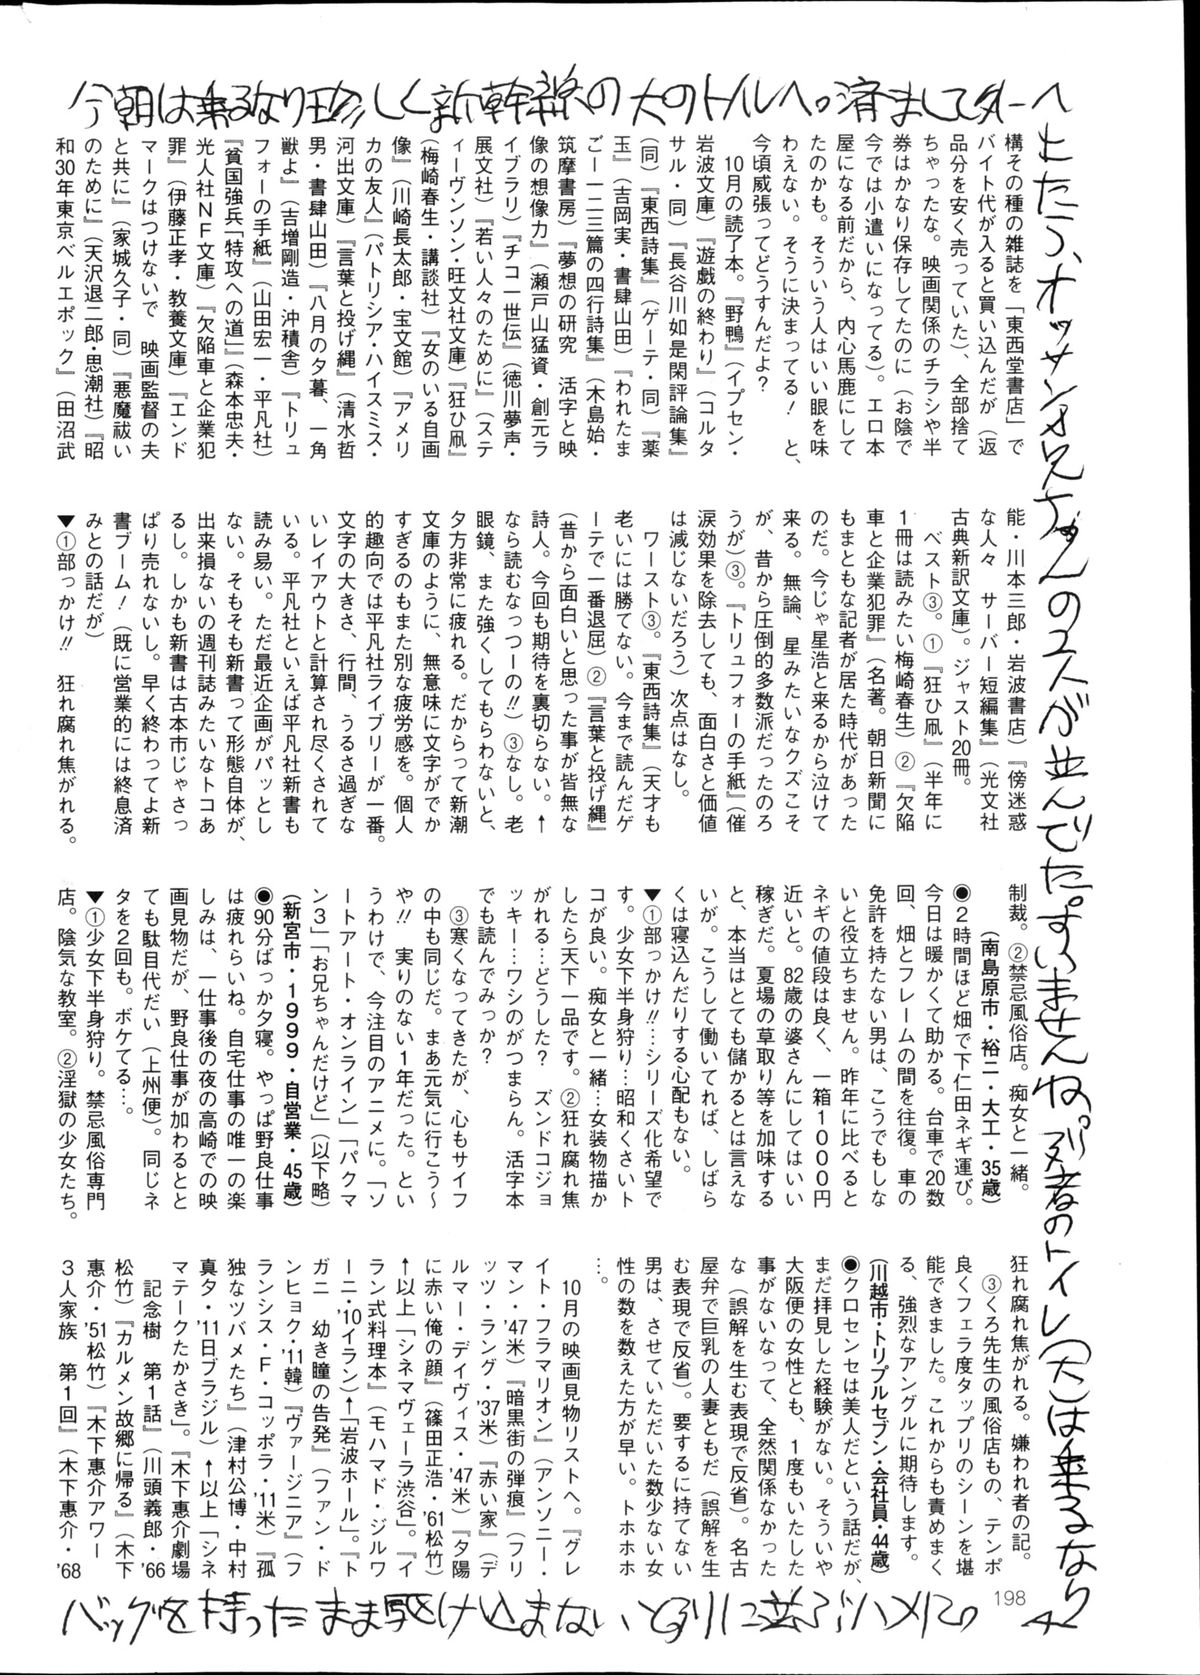 今朝は来るなり珍しく新幹線の大のトイルへ。済まして外へ
出たら、オッサンお兄ちゃんの2人が並んでた。すいませんね。列者のトイレ(大)は来るなり
バッグを持ったまま駆け込まないとダリに並ぶハメに。
構その種の雑誌を「東西堂書店」で
バイト代が入ると買い込んだが(返
品分を安く売っていた)、全部捨て
ちゃったな。映画関係のチラシや半
券はかなり保存してたのに(お陰で
今では小遣いになってる)。エロ本
屋になる前だから、内心馬鹿にして
たのかも。そういう人はいい眼を味
わえない。そうに決まってる! と、
今頃威張ってどうすんだよ?
10月の読了本。『野鴨』(イプセン・
岩波文庫)『遊戯の終わり』(コルタ
サル・同)『長谷川如是閑評論集』
(同)『東西詩集』(ゲーテ・同)『薬
玉』(吉岡実・書肆山田)『われたま
ご―一二三篇の四行詩集』(木島始・
筑摩書房)『夢想の研究 活字と映
像の想像力』(瀬戸山猛資・創元ラ
イブラリ)『チコ一世伝』(徳川夢声・
展文社)『若い人々のために』(ステ
ィーヴンソン・旺文社文庫)『狂ひ凧』
(梅崎春生・講談社)『女のいる自画
像』(川崎長太郎・宝文館)『アメリ
カの友人』(パトリシア・ハイスミス・
河出文庫)『言葉と投げ縄』(清水哲
男・書肆山田)『八月の夕暮、一角
獣よ』(吉増剛造・沖積舎)『トリュ
フォーの手紙』(山田宏一・平凡社)
『貧国強兵「特攻への道」』(森本忠夫・
光人社NF文庫)『欠陥車と企業犯
罪』(伊藤正孝・教養文庫)『エンド
マークはつけないで 映画監督の夫
と共に』(家城久子・同)『悪魔祓い
のために』(天沢退二郎・思潮社)『昭
和30年東京ベルエポック』(田沼武
能・川本三郎・岩波書店)『傍迷惑
な人々 サーバー短編集』(光文社
古典新訳文庫)。ジャスト20冊。
ベスト③。①『狂ひ凧』(半年に
1冊は読みたい梅崎春生)②『欠陥
車と企業犯罪』(名著。朝日新聞に
もまともな記者が居た時代があった
のだ。今じゃ星浩と来るから泣けて
来る。無論、星みたいなクズこそ
が、昔から圧倒的多数派だったのろ
うが)③。『トリュフォーの手紙』(催
涙効果を除去しても、面白さと価値
は減じないだろう)次点はなし。
ワースト③。『東西詩集』(天才も
老いには勝てない。今まで読んだゲ
ーテで一番退屈)②『言葉と投げ縄』
(昔から面白いと思った事が皆無な
詩人。今回も期待を裏切らない。↑
なら読むなっつーの!!)③なし。老
眼鏡、また強くしてもらわないと、
夕方非常に疲れる。だからって新潮
文庫のように、無意味に文字がでか
すぎるのもまた別な疲労感を。個人
的趣向では平凡社ライブリーが一番。
文字の大きさ、行間、うるさ過ぎな
いレイアウトと計算され尽くされて
いる。平凡社といえば平凡社新書も
読み易い。ただ最近企画がパッとし
ない。そもそも新書って形態自体が、
出来損ないの週刊誌みたいなトコあ
るし。しかも新書は古本市じゃさっ
ぱり売れないし。早く終わってよ新
書ブーム!(既に営業的には終息済
みとの話だが)
▼①部っかけ!! 狂れ腐れ焦がれる。
制裁。②禁忌風俗店。痴女と一緒。
(南島原市・裕二・大工・35歳)
●2時間ほど畑で下仁田ネギ運び。
今日は暖かくて助かる。台車で20数
回、畑とフレームの間を往復。車の
免許を持たない男は、こうでもしな
いと役立ちません。昨年に比べると
ネギの値段は良く、一箱1000円
近いと。82歳の婆さんにしてはいい
稼ぎだ。夏場の草取り等を加味する
と、本当はとても儲かるとは言えな
いが。こうして働いてれば、しばら
くは寝込んだりする心配もない。
▼①部っかけ!!…シリーズ化希望で
す。少女下半身狩り…昭和くさいト
コが良い。痴女と一緒…女装物描か
したら天下一品です。②狂れ腐れ焦
がれる…どうした? ズンドコジョ
ッキー…ワシのがつまらん。活字本
でも読んでみっか?
③寒くなってきたが、心もサイフ
の中も同じだ。まあ元気に行こう〜
や!! 実りのない1年だった。とい
うわけで、今注目のアニメに。「ソ
ートアート・オンライン」「パクマ
ン3」「お兄ちゃんだけど」(以下略)
(新宮市・1999・自営業・45歳)
●90分ばっか夕寝。やっぱ野良仕事
は疲れらいね。自宅仕事の唯一の楽
しみは、一仕事後の夜の高崎での映
画見物だが、野良仕事が加わるとと
ても駄目代だい(上州便)。同じネ
タを2回も。ボケてる…。
▼①少女下半身狩り。禁忌風俗専門
店。陰気な教室。②淫獄の少女たち。
狂れ腐れ焦がれる。嫌われ者の記。
③くろ先生の風俗店もの、テンポ
良くフェラ度タップリのシーンを堪
能できました。これからも責めまく
る、強烈なアングルに期待します。
(川越市・トリプルセブン・会社員・44歳)
●クロセンセは美人だという話だが、
まだ拝見した経験がない。そういや
大阪便の女性とも、1度もいたした
事がないなって、全然関係なかった
な(誤解を生む表現で反省)。名古
屋弁で巨乳の人妻ともだ(誤解を生
む表現で反省)。要するに持てない
男は、させていただいた数少ない女
性の数を数えた方が早い。トホホホ
…。
10月の映画見物リストへ。『グレ
イト・フラマリオン』(アンソニー・
マン・'47米)『暗黒街の弾痕』(フリ
ッツ・ラング・'37米)『赤い家』(デ
ルマー・デイヴィス・'47米)『夕陽
に赤い俺の顔』(篠田正浩・'61松竹)
↑以上「シネマヴェーラ渋谷」。『イ
ラン式料理本』(モハマド・ジルワ
ーニ・'10イラン)↑「岩波ホール」。『ト
ガニ 幼き瞳の告発』(ファン・ド
ンヒョク・'11韓)『ヴァージニア』(フ
ランシス・F・コッポラ・'11米)『孤
独なツバメたち』(津村公博・中村
真夕・'11日ブラジル)↑以上「シネ
マテークたかさき」。『木下惠介劇場
記念樹 第1話』(川頭義郎・'66
松竹)『カルメン故郷に帰る』(木下
惠介・'51松竹)『木下惠介アワー
3人家族 第1回』(木下惠介・'68
198